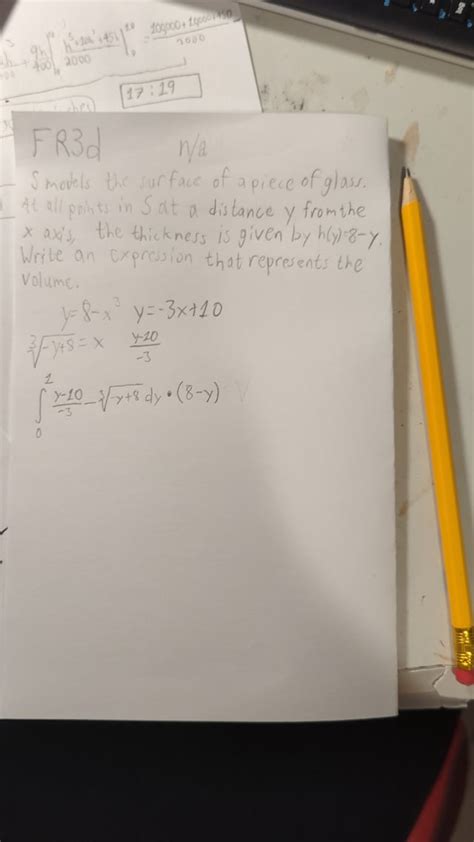 h³+20h²+45h
2000
100000+
2000
17:19
FR3d n/a
S models the surface of a piece of glass.
At all points in S at a distance y from the
x axis, the thickness is given by h(y)=8-y.
Write an expression that represents the
volume.
y=8-x³ y=-3x+10
∛-y+8 = x y-10/-3
∫₀¹ y-10/-3 - ∛-y+8 dy • (8-y)